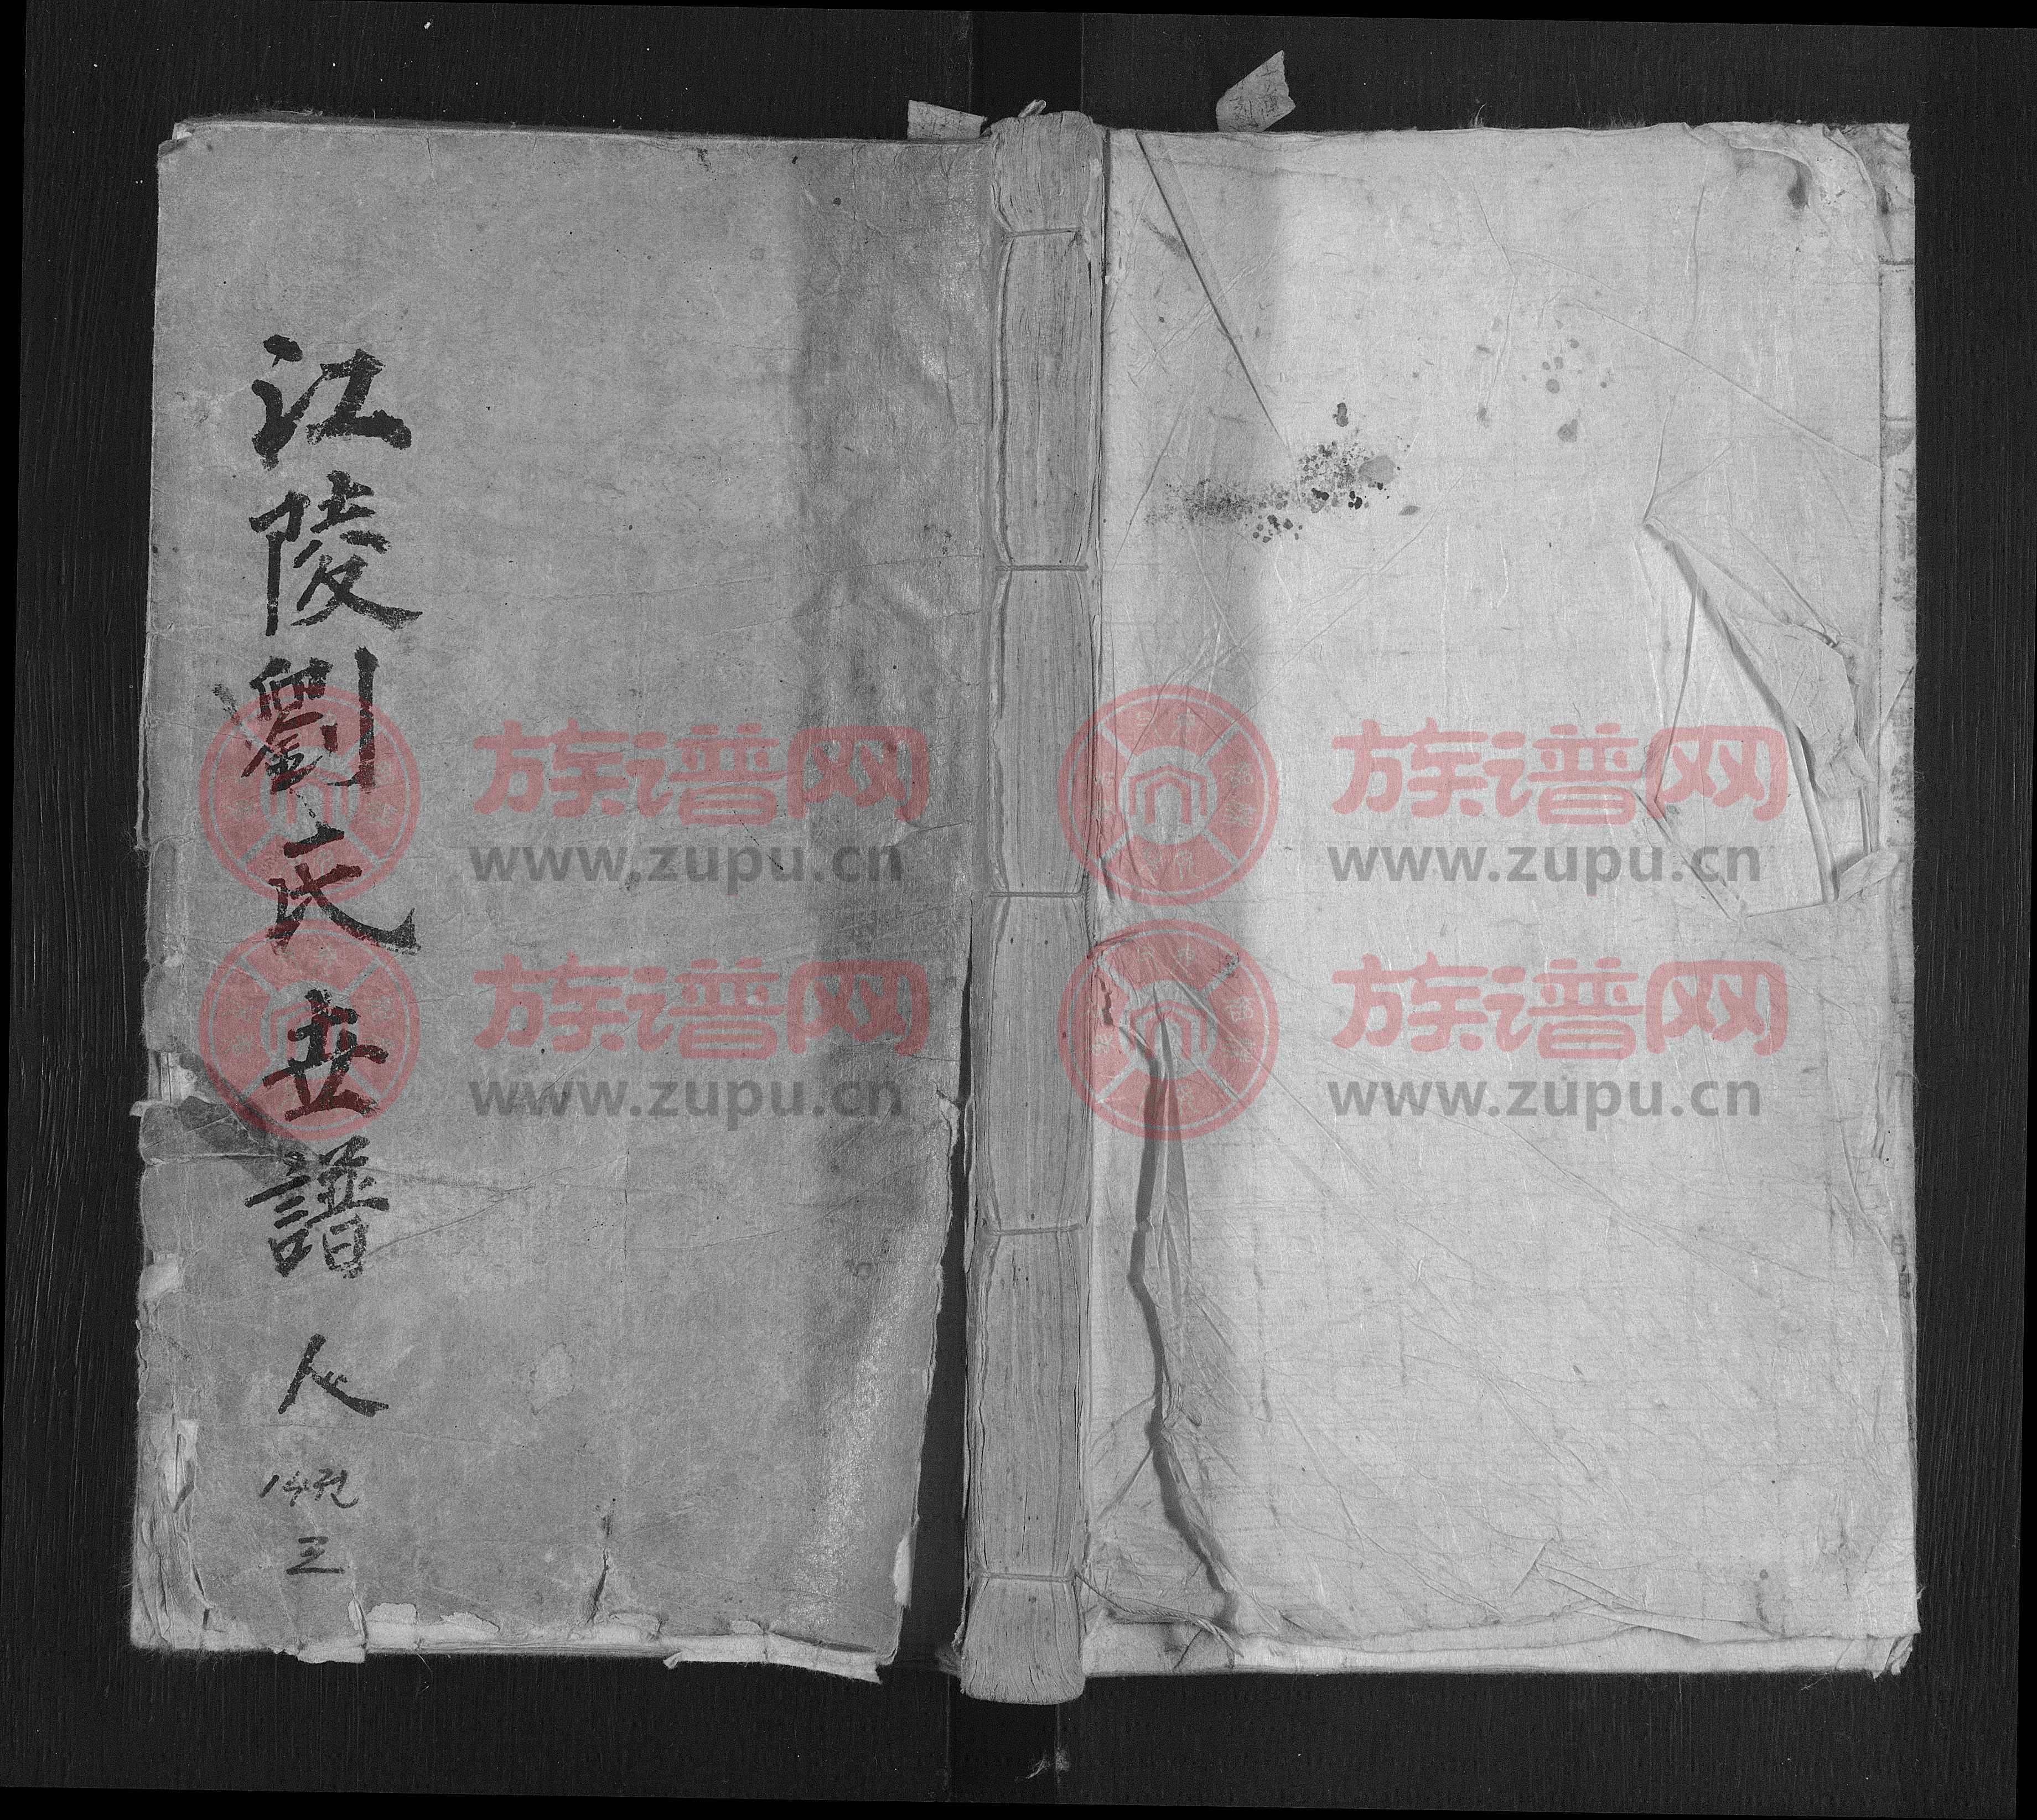 江陵劉氏世譜 人
14권
三
族谱网
www.zupu.cn
族谱网
www.zupu.cn
族谱网
www.zupu.cn
族谱网
www.zupu.cn